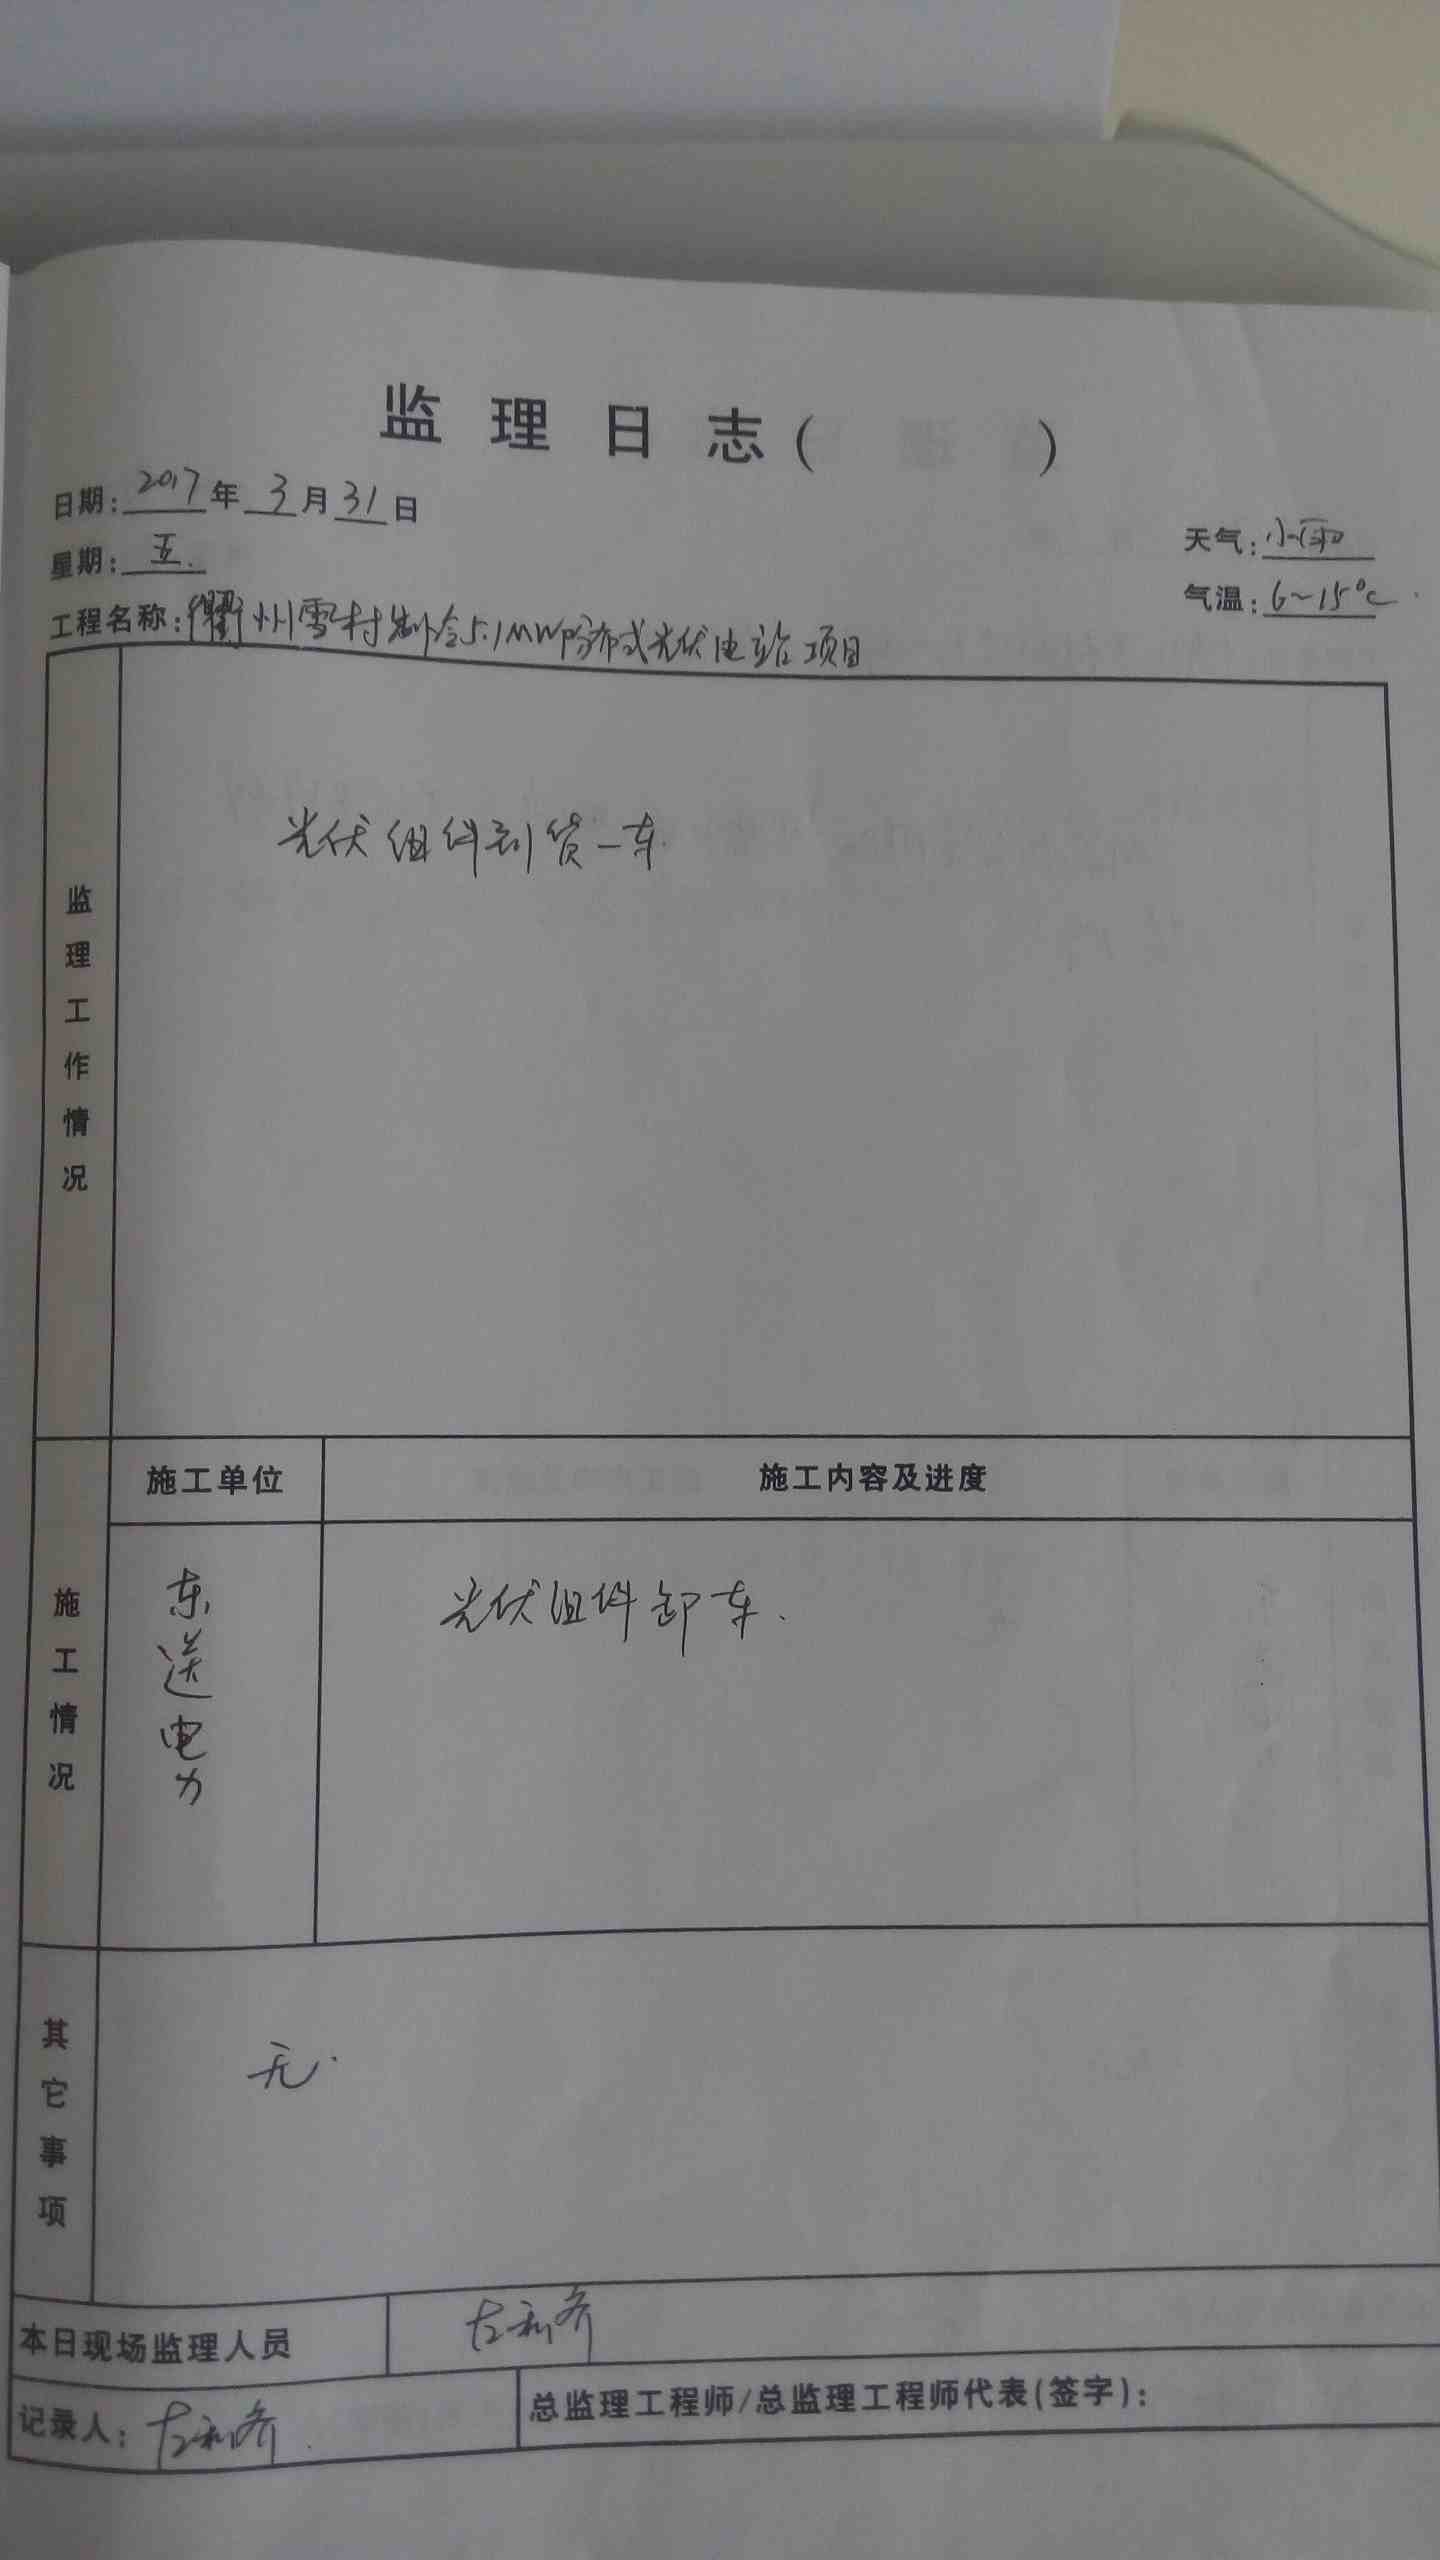 监理日志(    )
日期: 2017年 3月 31日
天气: 小雨
星期: 五.
气温: 6~15℃.
工程名称: 衢州雪村制冷5.1MWp分布式光伏电站项目
监理工作情况
光伏组件到货一车.
施工情况
施工单位
施工内容及进度
东送电力
光伏组件卸车.
其它事项
无.
本日现场监理人员
记录人:
总监理工程师/总监理工程师代表(签字):